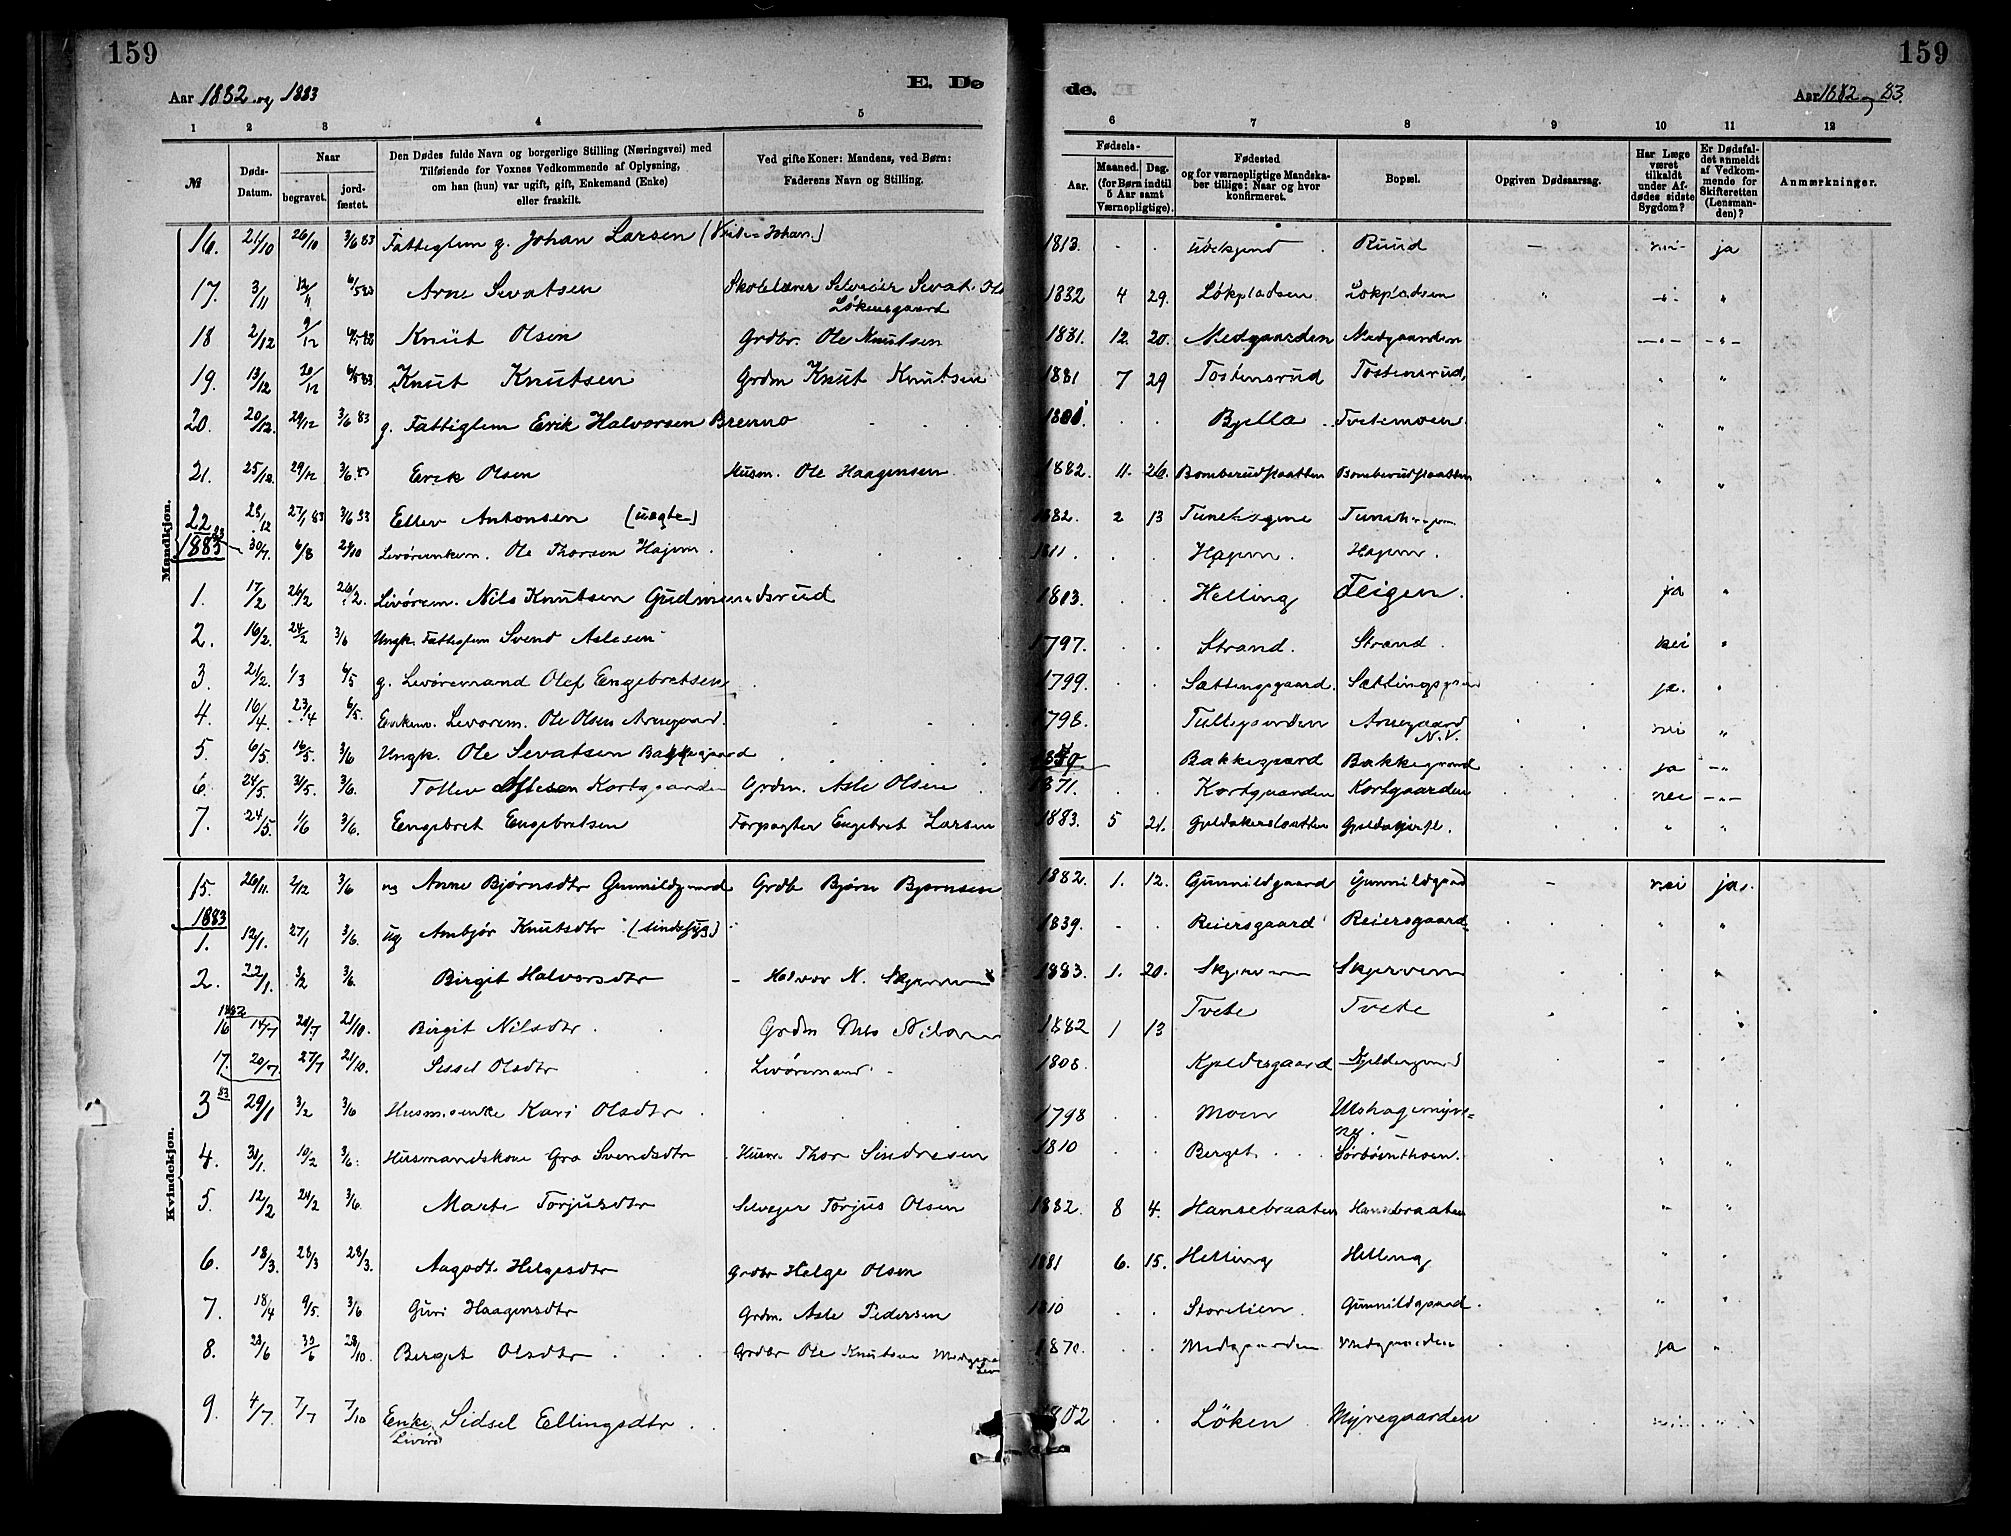 159
159
Aar 1882 og 1883
E. Dø
de.
Aar 1882 og 83.
1 2 3 4 5 6 7 8 9 10 11 12
№
Døds-Datum.
Naar
begravet.
jord-fæstet.
Den Dødes fulde Navn og borgerlige Stilling (Næringsvei) med
Tilføiende for Voxnes Vedkommende af Oplysning,
om han (hun) var ugift, gift, Enkemand (Enke)
eller fraskilt.
Ved gifte Koner: Mandens, ved Børn:
Faderens Navn og Stilling.
Fødsels-
Aar.
Maaned. Dag.
(for Børn indtil
5 Aar samt
Værnepligtige).
Fødested
og for værnepligtige Mandska-
ber tillige: Naar og hvor
konfirmeret.
Bopæl.
Opgiven Dødsaarsag.
Har Læge
været
tilkaldt
under Af-
dødes sidste
Sygdom?
Er Dødsfal-
det anmeldt
af Vedkom-
mende for
Skifteretten
(Lensman-
den)?
Anmærkninger.
Mandkjøn.
16. 21/10 26/10 3/6 83 Fattiglem g. Johan Larsen 1813. ubekjend Ruud nei ja
17. 3/11 12/11 6/5 83 Arne Sevatsen Skolelærer Selveier Sevat Ols Løkensgaard 1882 4 29. Løkpladsen Løkpladsen
18 2/12 9/12 6/5 83 Knut Olsen Grdbr. Ole Knutsen 1881. 12. 20. Medgaarden Medgaarden
19. 13/12 20/12 6/5 83 Knut Knutsen Grdm Knut Knutsen 1881 7 29 Tostensrud Tostensrud
20. 20/12. 29/12 3/6 83 g. Fattiglem Erik Halvorsen Brenno Bjella Tvetemoen
21. 25/12. 29/12 3/6 83 Erik Olsen Husm. Ole Haagensen 1882. 11. 26. Bomberudslaatten Bomberudslaatten
22 28/12 27/1 83 3/6 83 Ellev Antonsen (uægte) 1882. 2 13
1883 30/7. 6/8 Ole Thorsen Hajem 1811. Hajem. Hajem.
1. 17/2 26/2 26/2. Livørem. Nils Knutsen Gudmendsrud 1813. Helling Teigen. ja
2. 16/2. 24/2 3/6 Ungk. Fattiglem Svend Aslesen 1797. Strand. Strand. nei
3. 21/2. 1/3 6/5 g. Livøremand Olef Engebretsen 1799. Sættingsgaard. ja.
4. 16/4. 23/4 6/5. Enkem. Livørem. Ole Olsen Arnegaard. 1798. Arnegaard N.V. nei
5. 6/5. 16/5. 3/6 Ungk. Ole Sevatsen Bakkegaard Bakkegaard Bakkegaard ja
6. 24/5. 31/5. 3/6. Tollev Aslesen Kortgaarden Grdm. Asle Olsen 1871. Kortgaarden Kortgaarden nei
7. 24/5. 1/6 3/6. Engebret Engebretsen Forpagter Engebret Larsen 1883. 5 21.
Kvindekjøn.
15. 26/11. 2/12 3/6 ug Anne Bjørnsdtr Gunnildgaard Grdb Bjørn Bjørnsen 1882. 1. 12. Gunnildgaard Gunnildgaard nei ja.
1883
1. 12/1. 27/1 3/6. ug Ambjør Knutsdtr (sindssyg) 1839. Reiersgaard Reiersgaard
2. 22/1. 3/2 3/6. Birgit Halvorsdtr Halvor N. Skjervem 1883. 1. 20. Skjervem Skjervem
1882
16 14/7 20/7 21/10. Birgit Nilsdtr Grdm Nils Nilsen 1882 1 13 Tvete Tvete
17. 20/7 27/7 21/10. Sissel Olsdtr Livøremand 1808. Kjeldesgaard
3 83 29/1 3/2 3/6 Husm.enke Kari Olsdtr 1798 Moen
4. 31/1. 10/2 3/6. Husmandskone Gro Svendsdtr Husm. Thor Sindresen 1810 Berget
5. 12/2 24/2 3/6. Marte Torjusdtr Selveger Torjus Olsen 1882. 8 4. Hansebraaten Hansebraaten
6. 18/3. 28/3 28/3. Aagodt. Helgesdtr Grdbr Helge Olsen 1881 6. 15. Helling Helling
7. 18/4 9/5. 3/6 Guri Haagensdtr Grdm. Asle Pedersen 1810 Storelien. Gunnildgaard.
8. 23/6 30/6 28/10. Birgit Olsdtr Grdbr Ole Knutsen 1870. Medgaarden Medgaarden ja
9. 4/7. 7/7 7/10 Enke Livøre Sidsel Ellingsdtr 1802 Løken Myregaarden